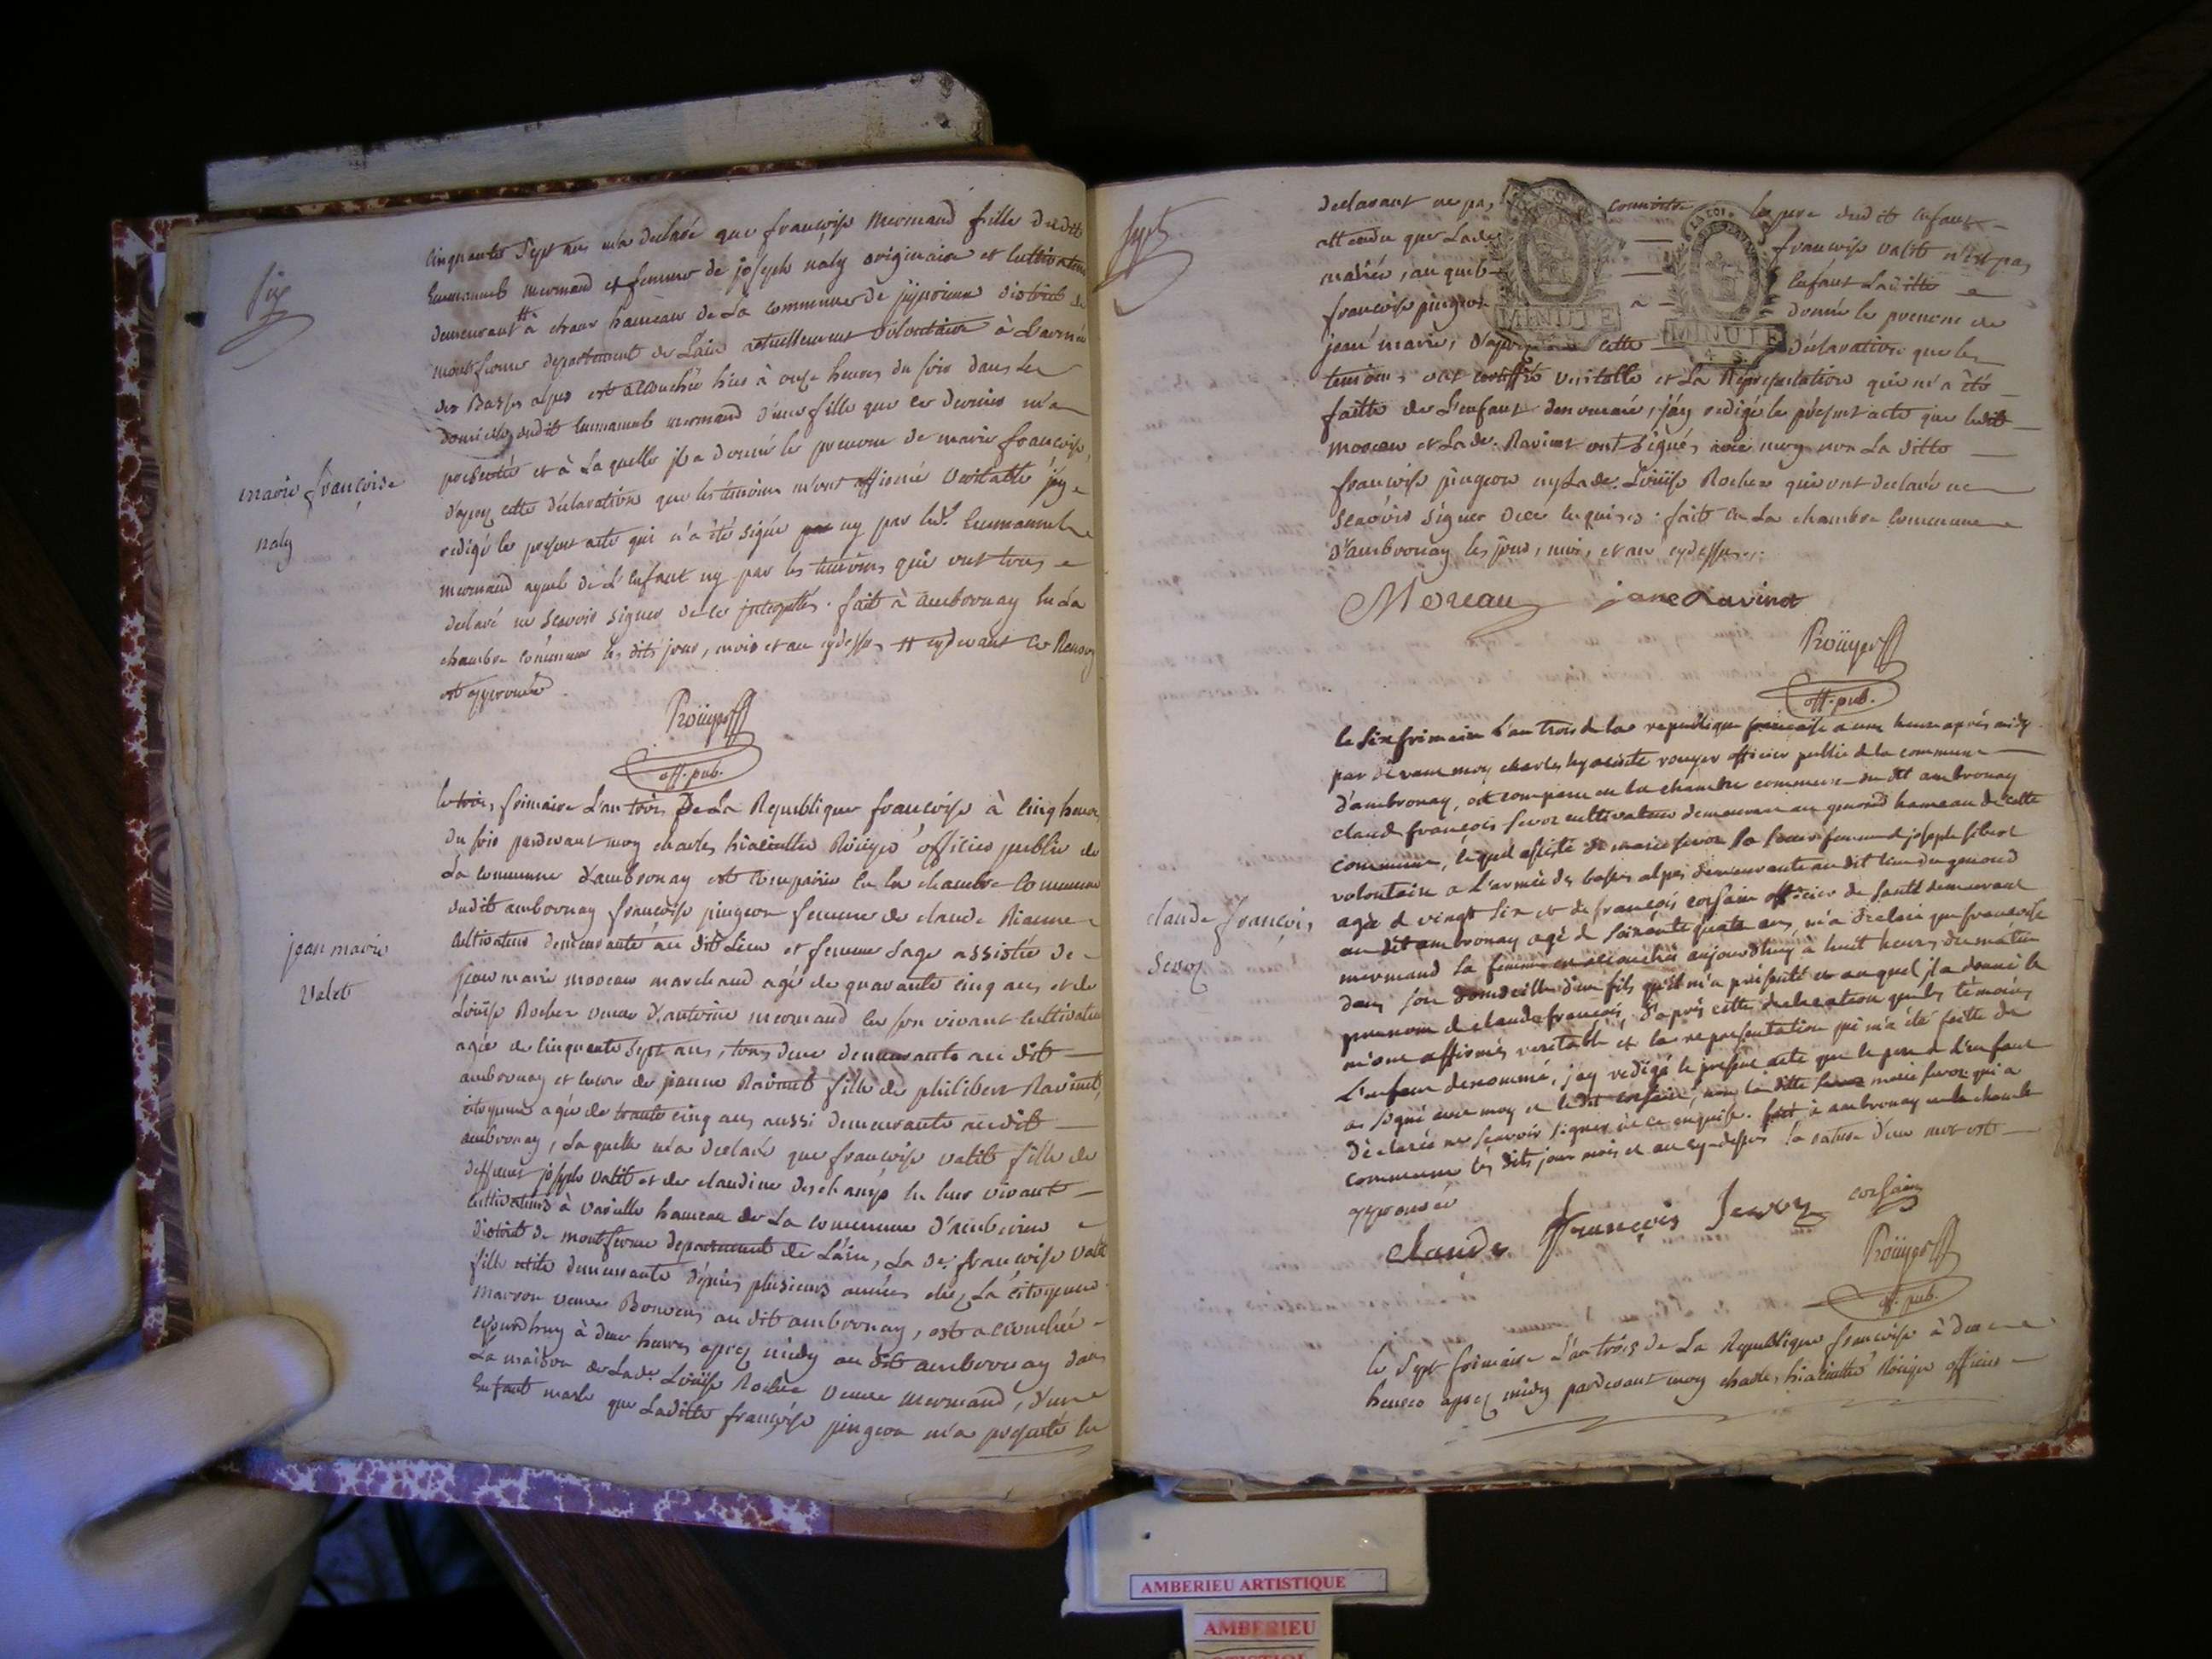 six
cinquante Sept ans m'a declaré que françoise mermand fille dudit
Emmanuel mermand et femme de joseph naly originaire et Cultivateur
demeurant à hameau de La commune de jujurieux district de
montferme departement de Lain actuellement volontaire à L'armée
des Basses alpes est accouchée hier à onze heures du soir dans le
domicile dudit Emmanuel mermand d'une fille que ce dernier m'a
presentée et à Laquelle il a donné le prenom de marie françoise,
marie françoise
naly
d'apres cette declaration que les temoins m'ont affirmé veritable j'ay
redigé le present acte qui n'a été signé ny par led. Emmanuel
mermand ayeul de L'enfant ny par les temoins qui ont tous
declaré ne sçavoir signer de ce interpellés. fait à ambronay en La
chambre commune les dits jour, mois et an cydessus # cydevant Ce Renvoy
est approuvé
Roüyer
off. pub.
le trois frimaire L'an trois De La Republique françoise à Cinq heures
du soir pardevant moy charles hiacinthe Roüyer officier public de
La commune d'ambronay est comparue en la chambre Commune
dudit ambronay françoise pingeon femme de claude
cultivateur demeurante au dit Lieu et femme sage assistée de
jean marie moreau marchand agé de quarante cinq ans et de
jean marie
Valet
Loüise Rocher veuve d'antoine mermand en son vivant cultivateur
agée de cinquante sept ans, tous deux demeurants au dit
ambronay et encore de jeanne Ravinet fille de philibert Ravinet,
citoyenne agée de trente cinq ans aussi demeurante audit
ambronay, Laquelle m'a declaré que françoise valet fille de
deffunt joseph valet et de claudine deschamps en leur vivant
cultivateurs à vareille hameau de La commune d'amberieu
district de montferme departement de Lain, La de. françoise valet
fille demeurante depuis plusieurs années chez La citoyenne
marron veuve au dit ambronay, est accouchée
aujourdhuy à deux heures après midy au dit ambronay dans
La maison de Lade. Loüise Rocher veuve mermand, d'un
Enfant masle que Laditte françoise pingeon m'a presenté en
sept
declarant ne pas connoitre le pere dudit enfant
attendu que Lade françoise valet n'est pas
mariée, auquel enfant Laditte
françoise pingeon donné le prenom de
jean marie, d'apres cette declaration que les
MINUTE
LA LOI
MINUTE
4 S.
temoins ont certiffié veritable et La Representation qui m'a été
faitte de L'enfant denommé, j'ay redigé le present acte que ledit
moreau et Lade. Ravinet ont signés avec moy non La ditte
françoise pingeon ny Lade. Loüise Rocher qui ont declaré ne
sçavoir signer de ce enquises. fait en La chambre Commune
d'ambronay les jour, mois, et an cydessus.
Moreau jane Ravinet
Roüyer
off. pub.
le six frimaire l'an trois de la republique françoise a une heure après midy
par devant moy charles hyacinte rouyer officier public de la commune
d'ambronay, est comparu en la chambre commune du dit ambronay
claude françois cultivateur demeurant au genoud hameau de cette
commune, lequel assisté de marie sa soeur femme de joseph
volontaire a L'armée des basses alpes demeurante au dit lieu du genoud
agée de vingt six et de françois corsain officier de santé demeurant
claude françois
au dit ambronay agé de soixante quatre ans, m'a declaré que françoise
mermand sa femme est accouchée aujourdhuy à huit heures du matin
dans son domicille d'un fils qu'il m'a présenté et auquel il a donné le
prenom de claude françois, d'après cette declaration que les témoins
m'ont affirmés veritable et la representation qui m'a été faitte de
L'enfant denommé, j'ay redigé le present acte que le pere de l'enfant
a signé avec moy et ledit corsain, non la ditte marie qui a
déclarée ne sçavoir signer de ce enquise. fait à ambronay en la chambre
commune les dits jour mois et an cy-dessus la rature d'un mot est
approuvée
claude françois corsain
Roüyer
off. pub.
le sept frimaire L'an trois de La Republique françoise à deux
heures après midy pardevant moy charles hiacinthe Roüyer officier
AMBERIEU ARTISTIQUE
AMBERIEU